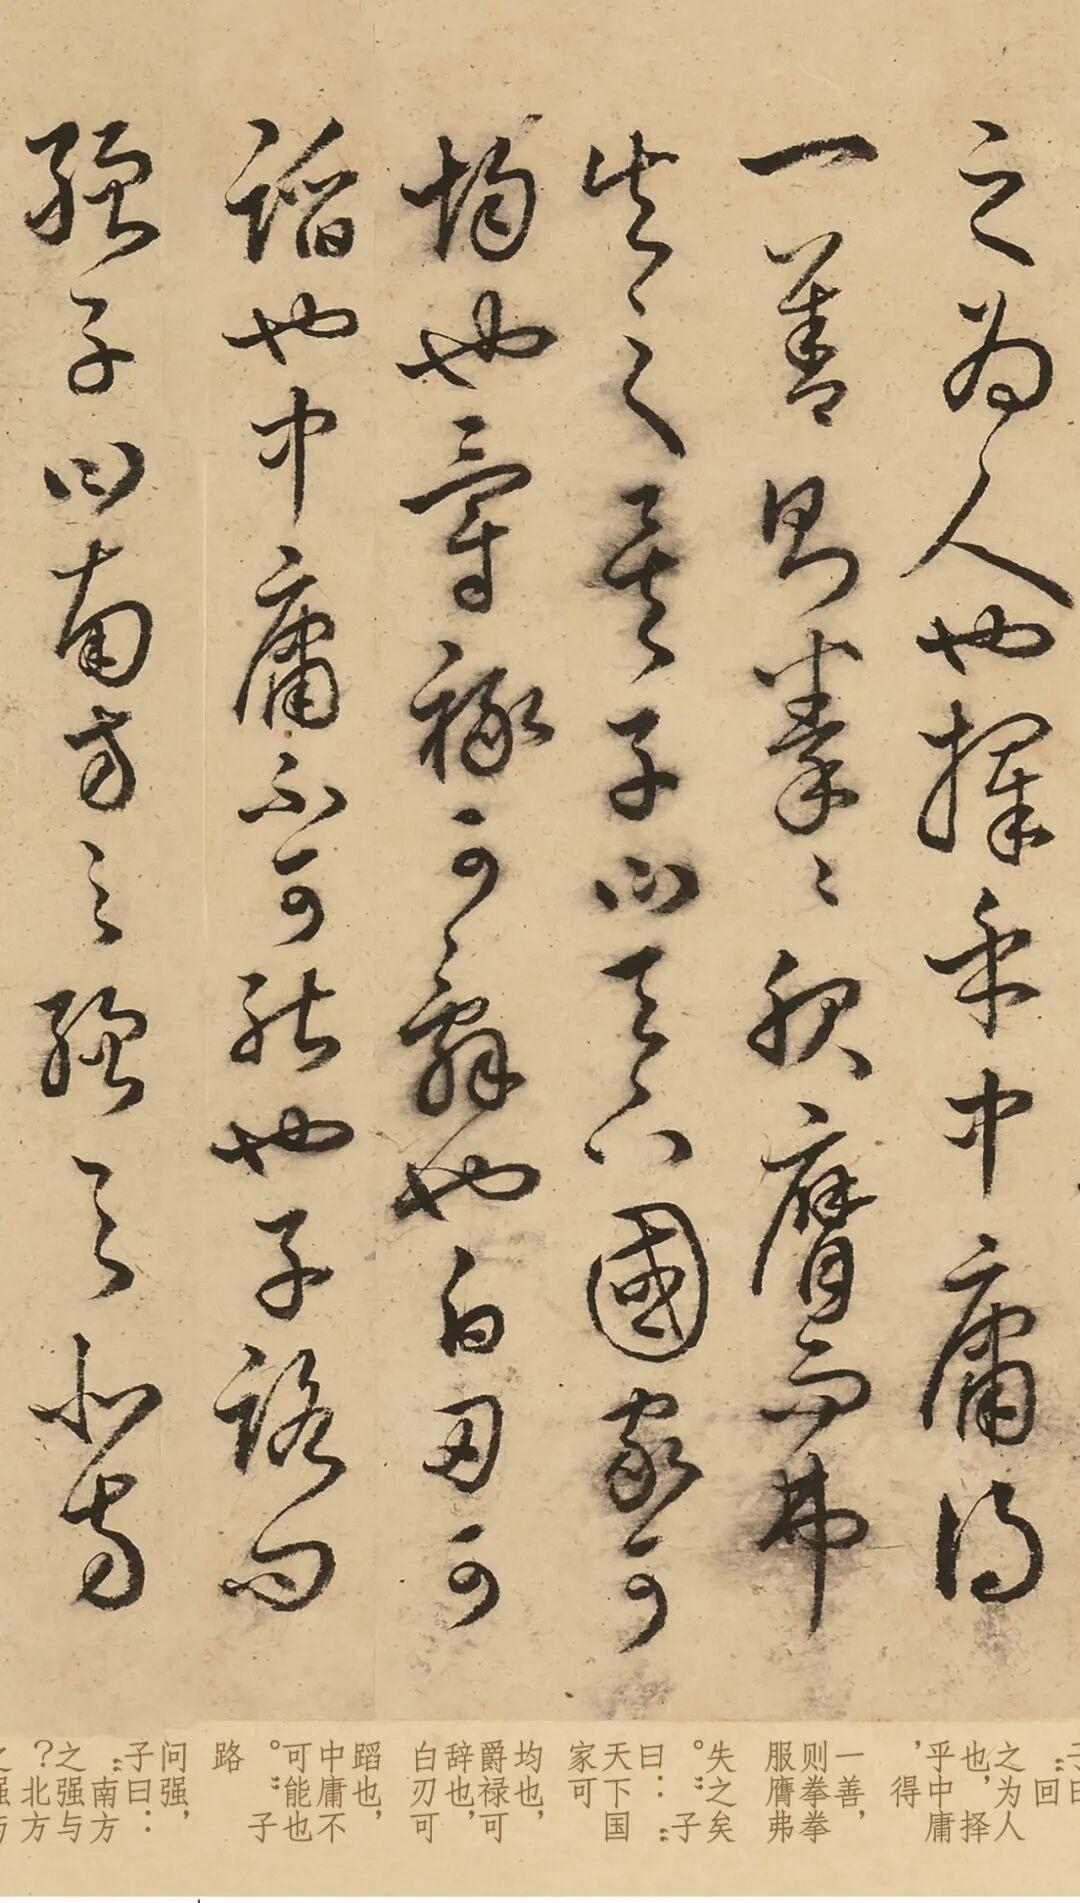 之為人也擇乎中庸得
一善則拳〻服膺而弗
失之矣子曰天下國家可
均也爵祿可辭也白刃可
蹈也中庸不可能也子路問
強子曰南方之強與北方
子曰
“回
之为人
也，择
乎中庸
，得
一善，
则拳拳
服膺弗
失之矣
。”子
曰：“
天下国
家可
均也，
爵禄可
辞也，
白刃可
蹈也，
中庸不
可能也
。”子
路
问强，
子曰：
“南方
之强与
？北方
之强与